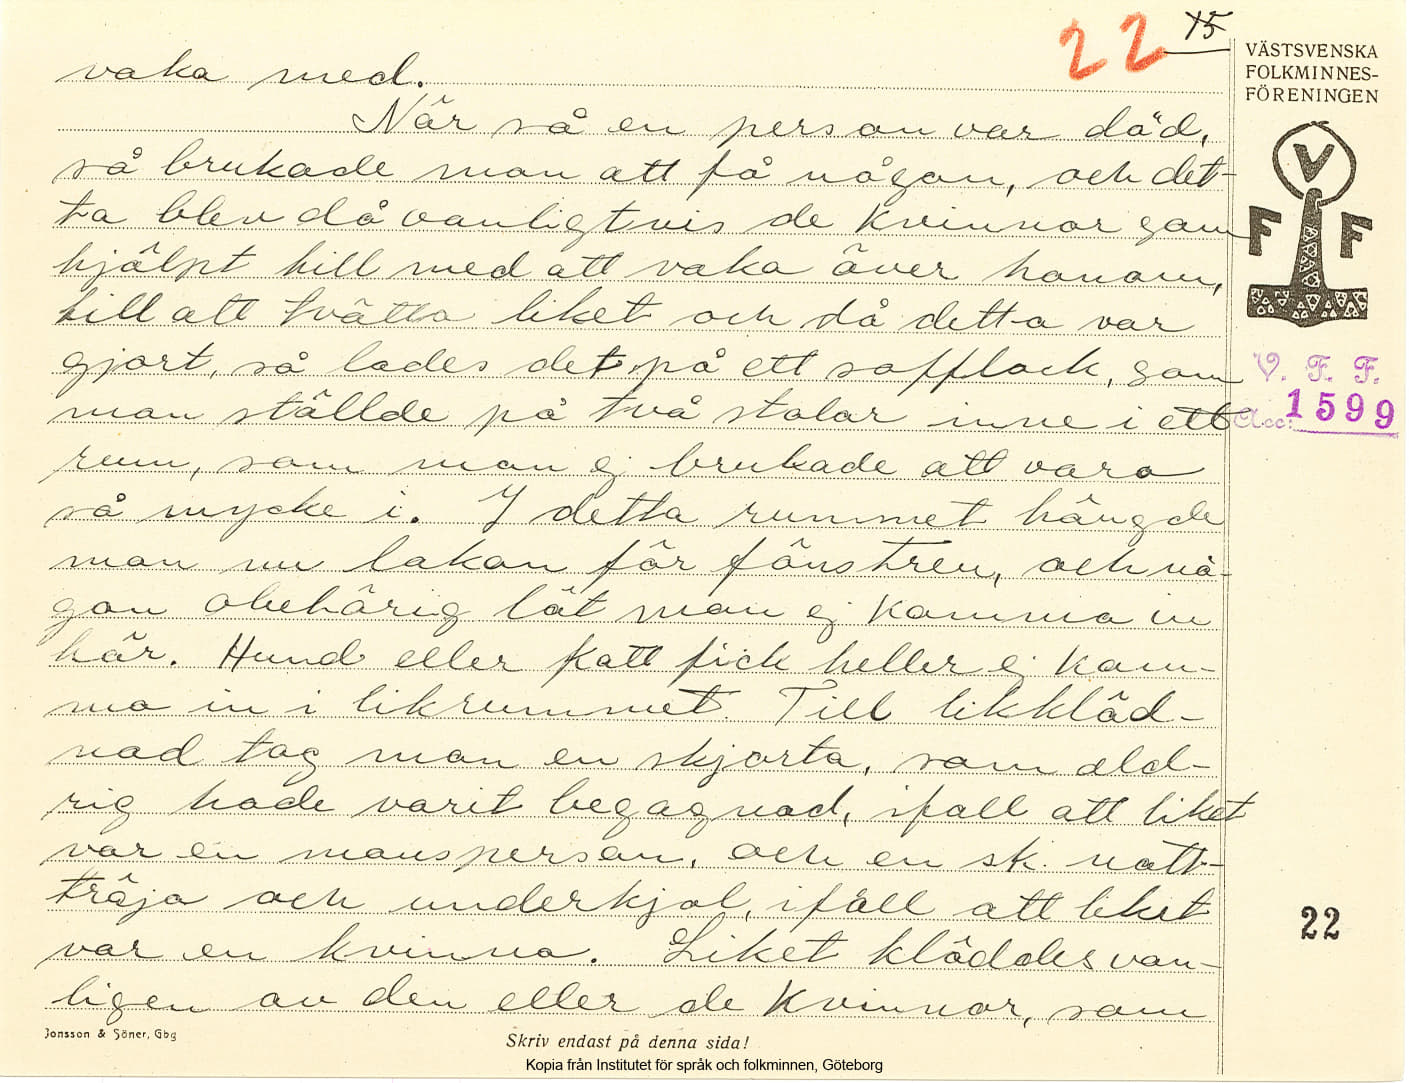 22 15
VÄSTSVENSKA
FOLKMINNES-
FÖRENINGEN
V
F F
V. F. F.
Acc: 1599
vaka med.
När så en person var död,
så brukade man att få någon, och det-
ta blev då vanligtvis de kvinnor som
hjälpt till med att vaka över honom,
till att tvätta liket och då detta var
gjort, så lades det på ett sofflock, som
man ställde på två stolar inne i ett
rum, som man ej brukade att vara
så mycke i. I detta rummet hängde
man nu lakan för fönstren, och nå-
gon obehörig lät man ej komma in
här. Hund eller katt fick heller ej kom-
ma in i likrummet. Till likkläd-
nad tog man en skjorta, som ald-
rig hade varit begagnad, ifall att liket
var en mansperson, och en sk. natt-
tröja och underkjol, ifall att liket
var en kvinna. Liket kläddes van-
ligen av den eller de kvinnor, som
22
Jonsson & Söner, Gbg
Skriv endast på denna sida!
Kopia från Institutet för språk och folkminnen, Göteborg